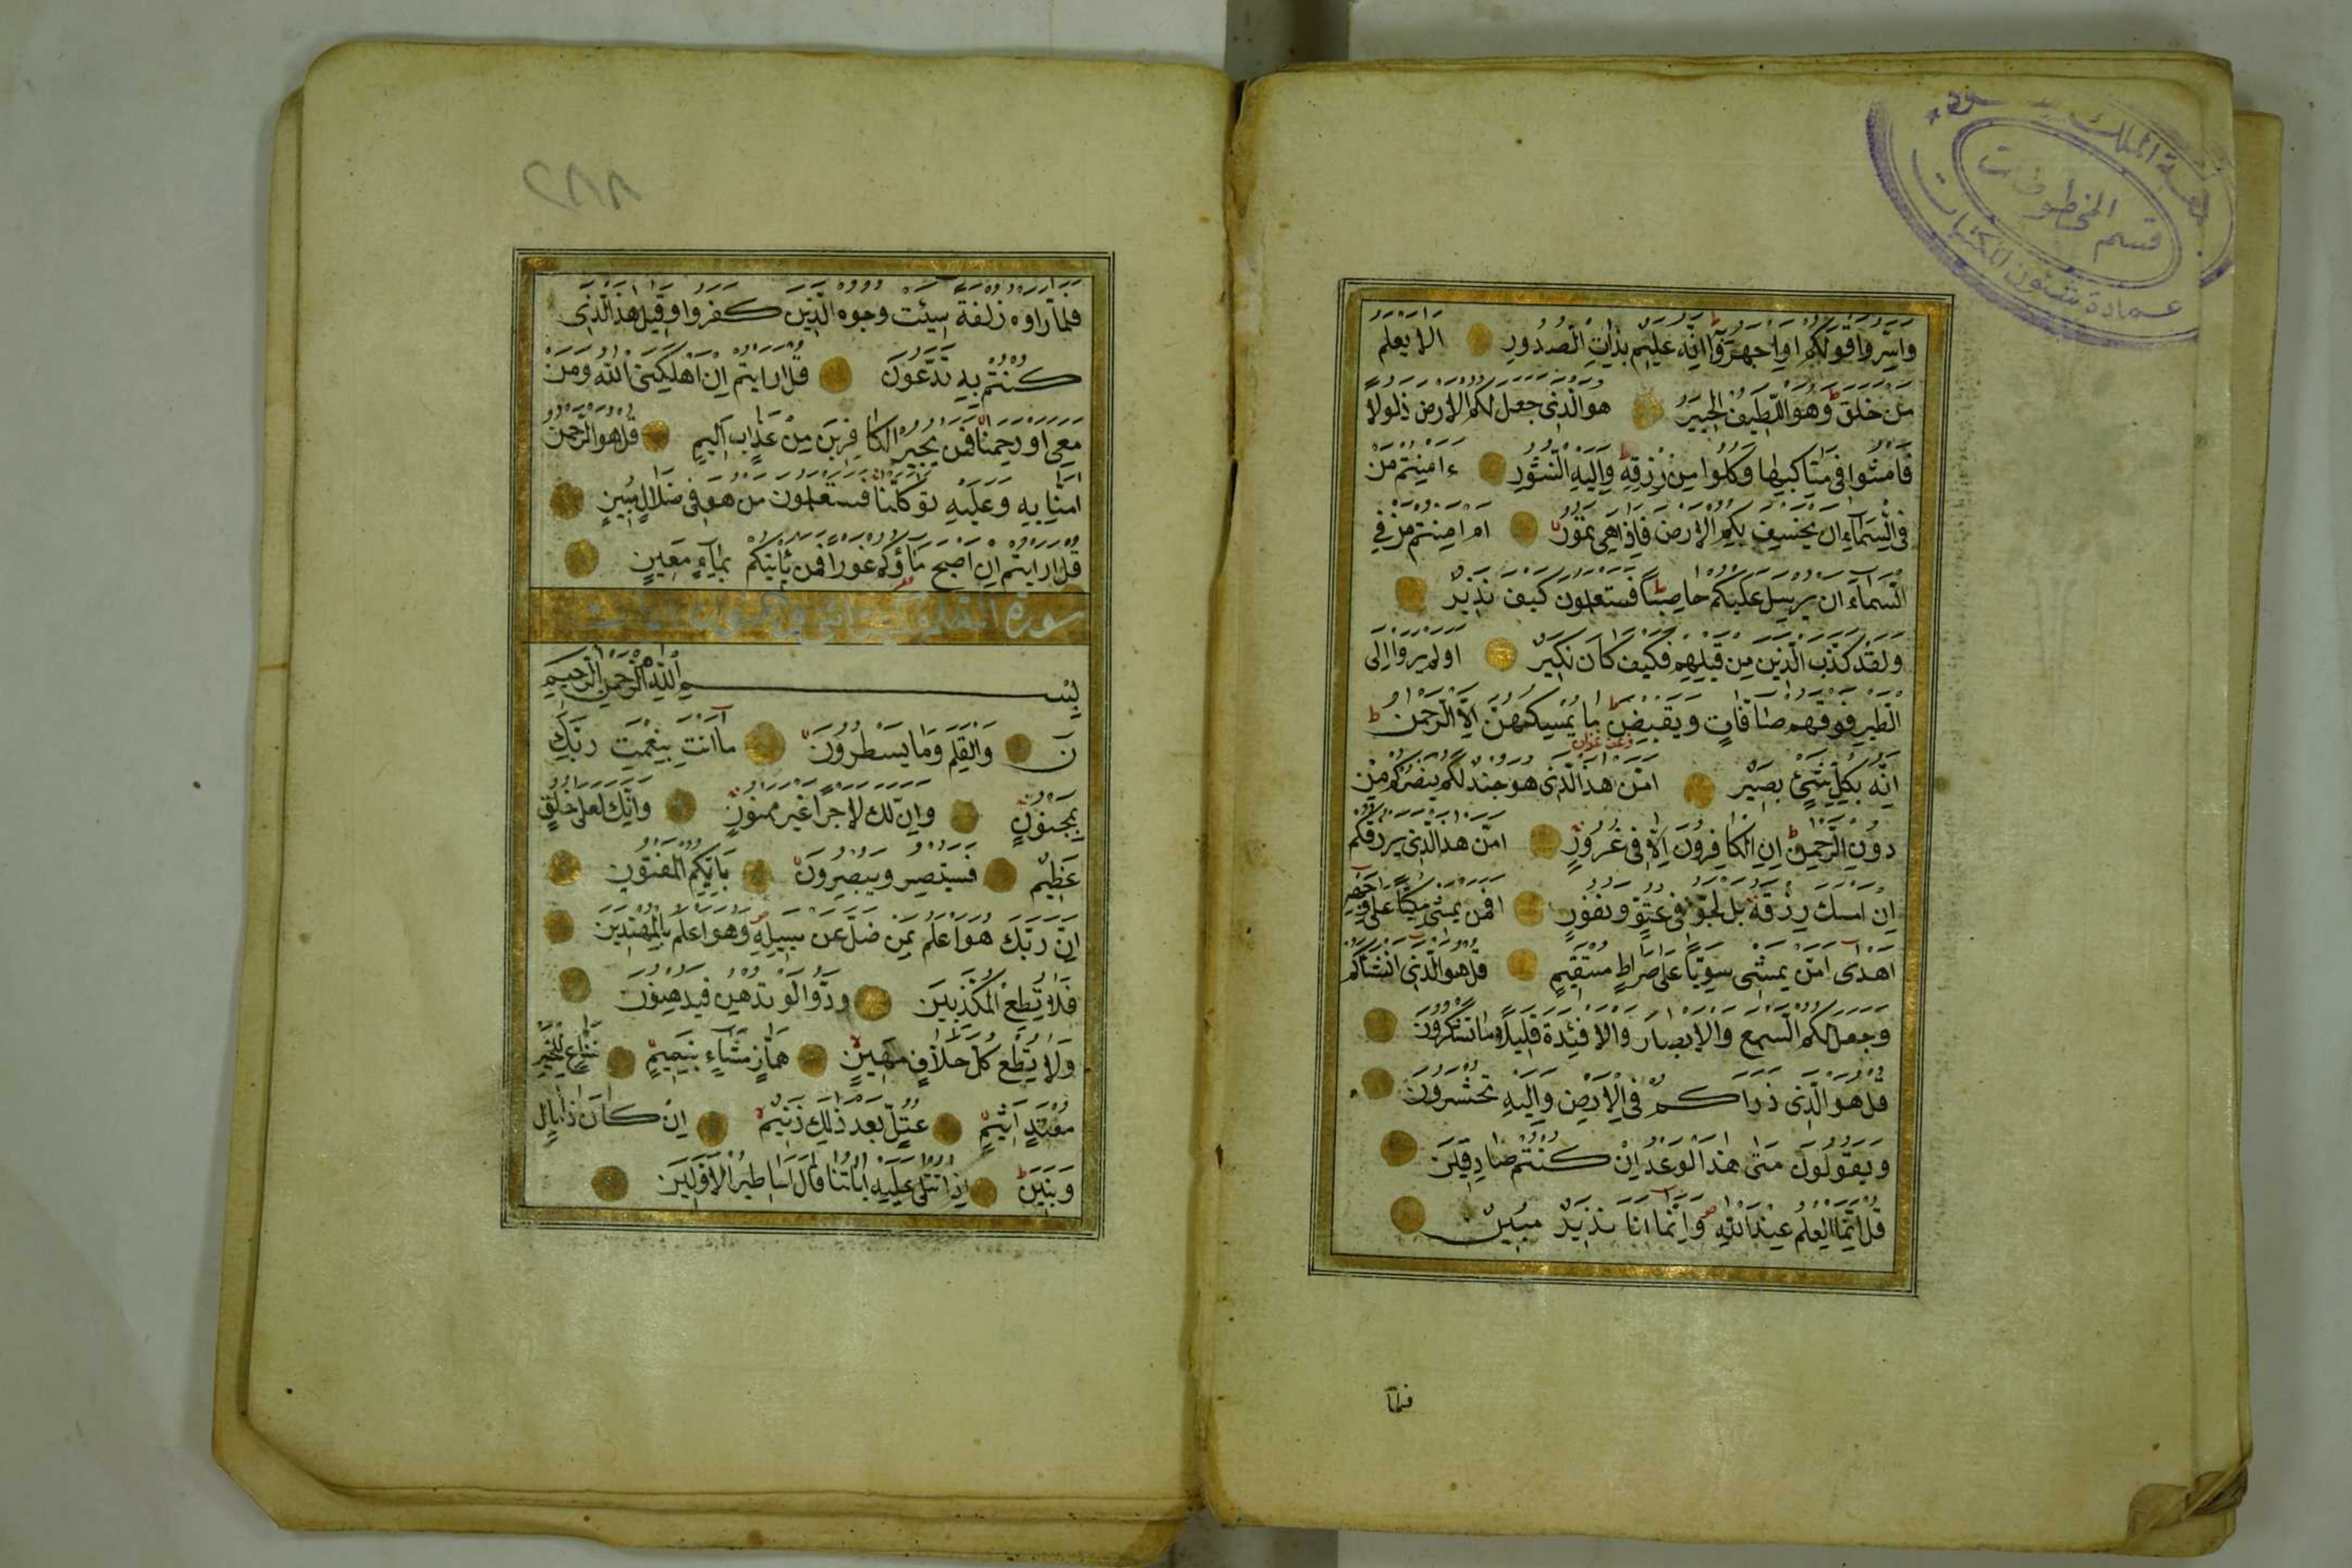 جامعة الملك سعود
قسم المخطوطات
عمادة شئون المكتبات
واسروا قولكم او اجهروا به انه عليم بذات الصدور الا يعلم
من خلق وهو اللطيف الخبير هو الذي جعل لكم الارض ذلولا
فامشوا في مناكبها وكلوا من رزقه واليه النشور ءامنتم من
في السماء ان يخسف بكم الارض فاذا هي تمور ام امنتم من في
السماء ان يرسل عليكم حاصبا فستعلمون كيف نذير
ولقد كذب الذين من قبلهم فكيف كان نكير اولم يروا الى
الطير فوقهم صافات ويقبضن ما يمسكهن الا الرحمن
انه بكل شئ بصير امن هذا الذي هو جند لكم ينصركم من
دون الرحمن ان الكافرون الا في غرور امن هذا الذي يرزقكم
ان امسك رزقه بل لجوا في عتو ونفور افمن يمشي مكبا على وجهه
اهدى امن يمشي سويا على صراط مستقيم قل هو الذي انشاكم
وجعل لكم السمع والابصار والافئدة قليلا ما تشكرون
قل هو الذي ذراكم في الارض واليه تحشرون
ويقولون متى هذا الوعد ان كنتم صادقين
قل انما العلم عند الله وانما انا نذير مبين
فلما
فلما راوه زلفة سيئت وجوه الذين كفروا وقيل هذا الذي
كنتم به تدعون قل ارايتم ان اهلكني الله ومن
معي او رحمنا فمن يجير الكافرين من عذاب اليم قل هو الرحمن
امنا به وعليه توكلنا فستعلمون من هو في ضلال مبين
قل ارايتم ان اصبح ماؤكم غورا فمن ياتيكم بماء معين
سورة القلم
بسم الله الرحمن الرحيم
ن والقلم وما يسطرون ما انت بنعمت ربك
بمجنون وان لك لاجرا غير ممنون وانك لعلى خلق
عظيم فستبصر ويبصرون باييكم المفتون
ان ربك هو اعلم بمن ضل عن سبيله وهو اعلم بالمهتدين
فلا تطع المكذبين ودوا لو تدهن فيدهنون
ولا تطع كل حلاف مهين هماز مشاء بنميم مناع للخير
معتد اثيم عتل بعد ذلك زنيم ان كان ذا مال
وبنين اذا تتلى عليه اياتنا قال اساطير الاولين